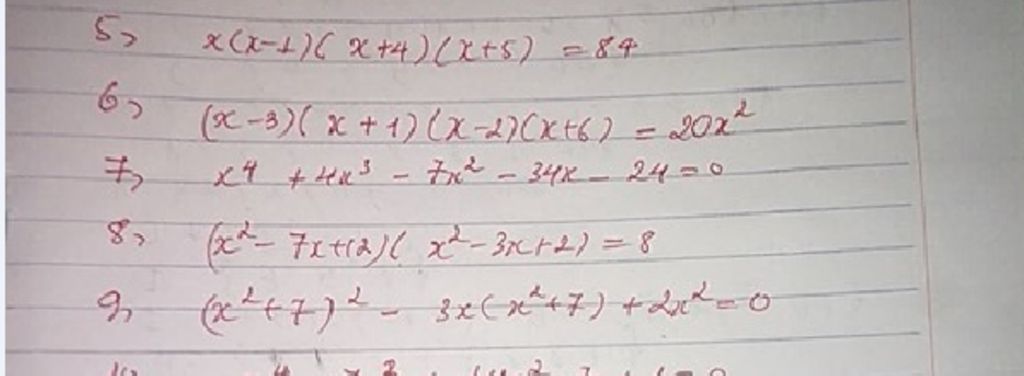 5, x(x-1)(x+4)(x+5) = 84
6, (x-3)(x+1)(x-2)(x+6) = 20x²
7, x⁴ + 4x³ - 7x² - 34x - 24 = 0
8, (x² - 7x+12)(x²-3x+2) = 8
9, (x²+7)² - 3x(x²+7) + 2x² = 0